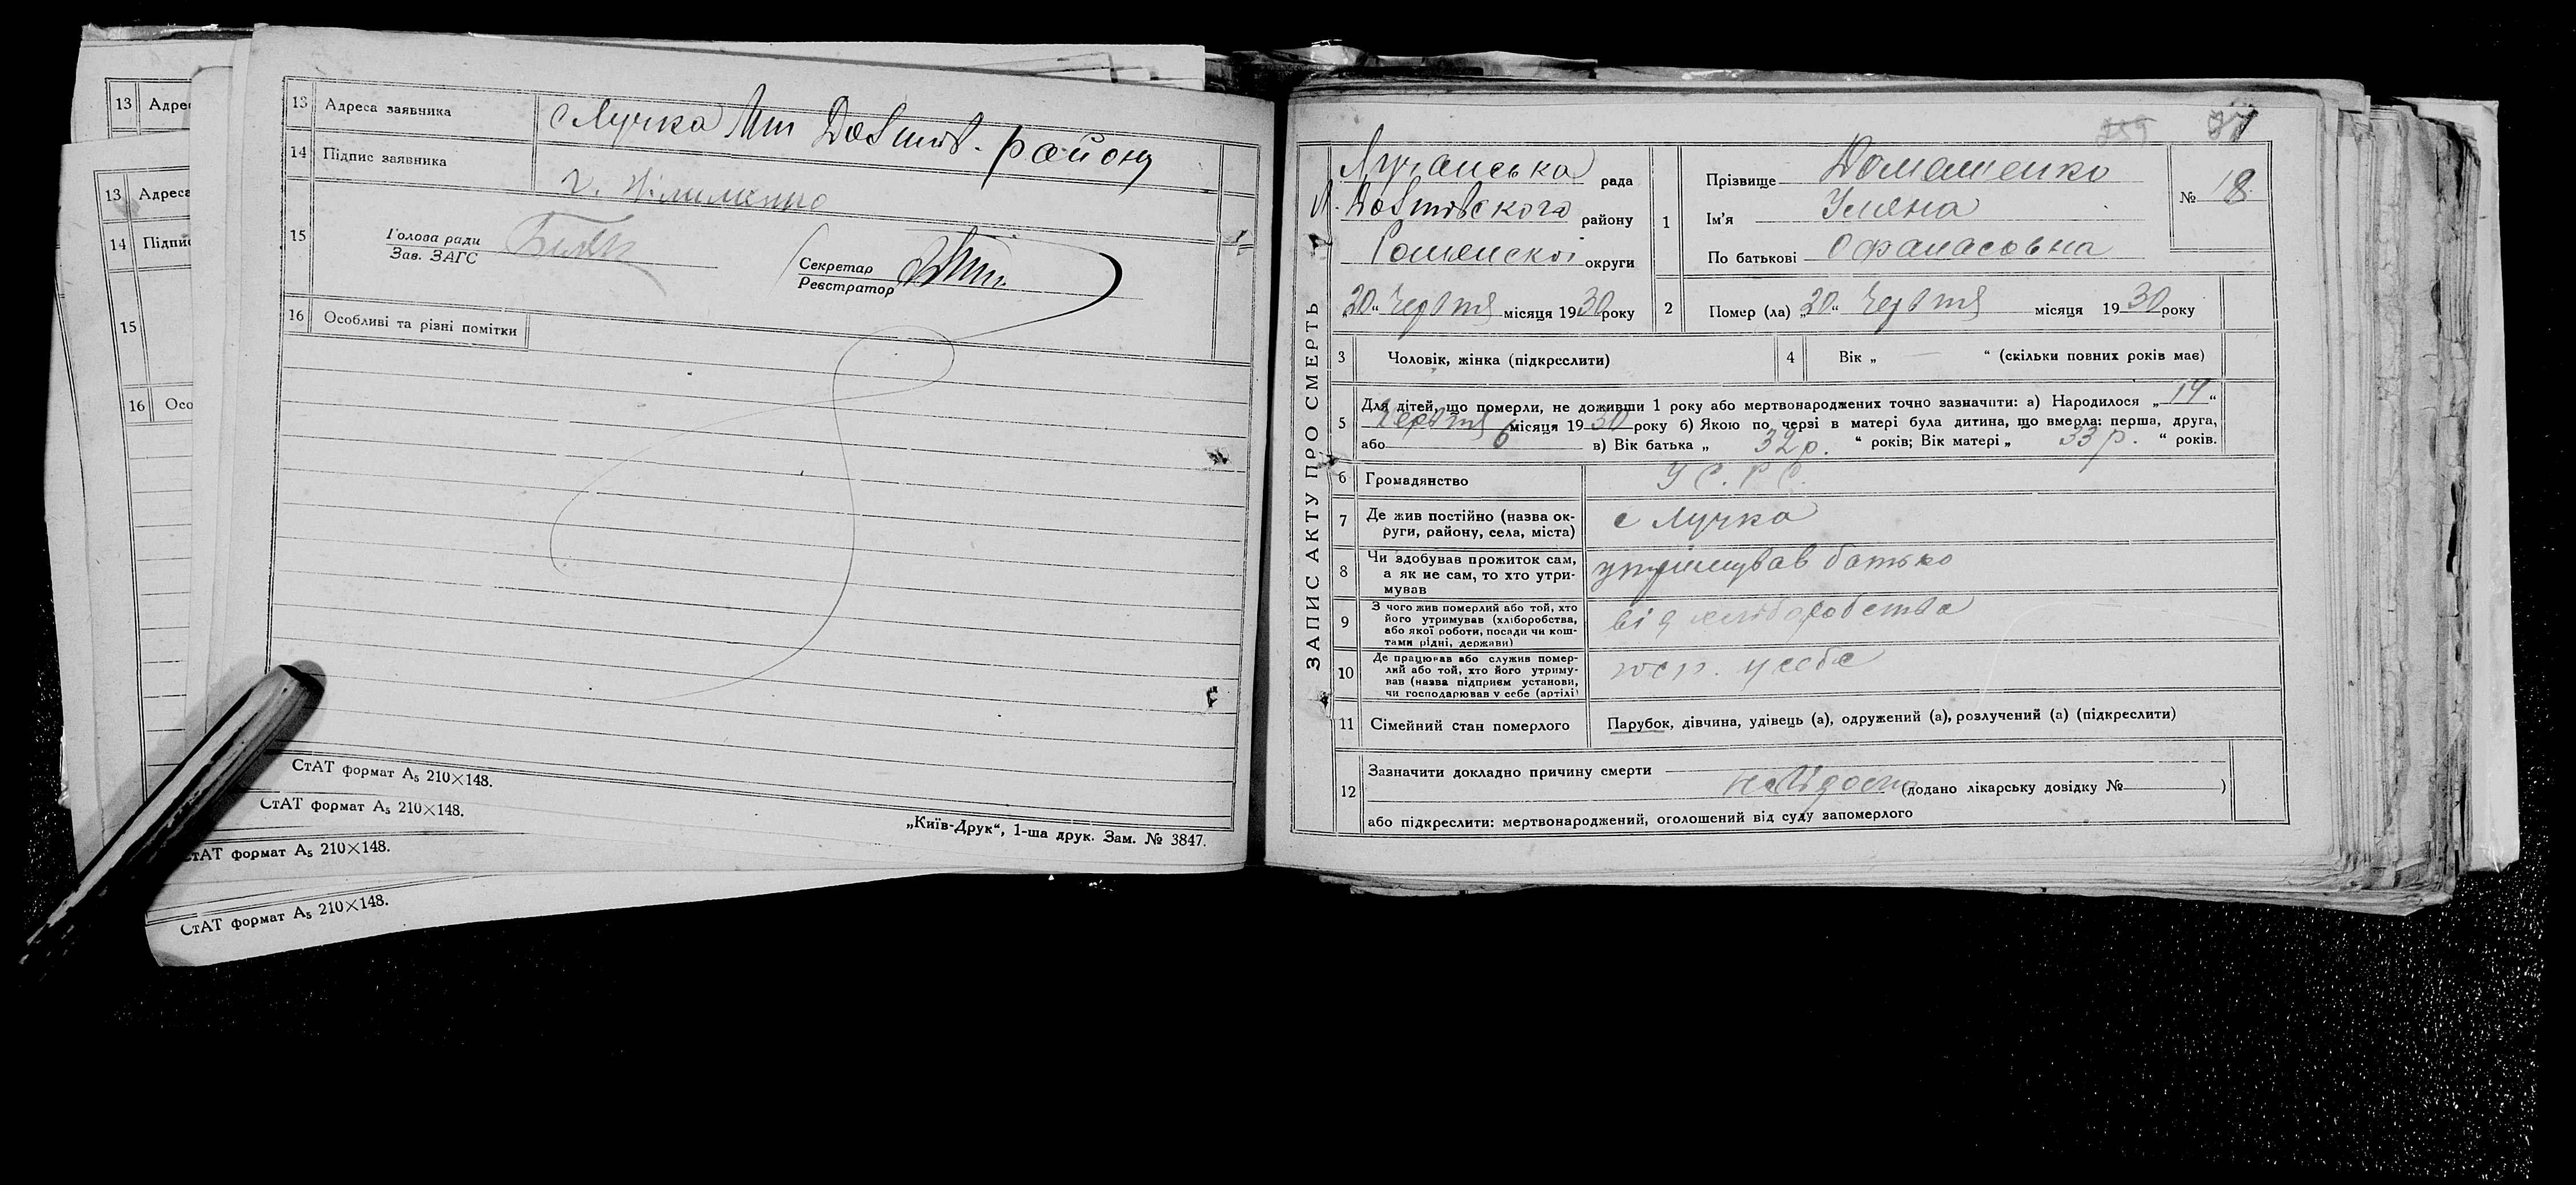 13 Адрес
13 Адреса
14 Підпис
15
16 Осо
13 Адреса заявника с Лучка Мт Довжик. району
14 Підпис заявника
15 Голова ради
Зав. ЗАГС
Секретар
Реєстратор
16 Особливі та різні помітки
СтАТ формат А5 210×148.
СтАТ формат А5 210×148.
СтАТ формат А5 210×148.
СтАТ формат А5 210×148.
„Київ-Друк“, 1-ша друк. Зам. № 3847.
ЗАПИС АКТУ ПРО СМЕРТЬ
Лучанська рада
району
Роменскої округи
„20“ Червтя місяця 1930 року
1 Прізвище Домашенко
Ім'я Уляна
По батькові Офанасовна
№ 18
2 Помер (ла) „20“ Червтя місяця 1930 року
3 Чоловік, жінка (підкреслити)
4 Вік „ — “ (скільки повних років має)
5 Для дітей, що померли, не доживши 1 року або мертвонароджених точно зазначити: а) Народилося „14“
Червтя місяця 1930 року б) Якою по черві в матері була дитина, що вмерла: перша, друга,
або 6 в) Вік батька „ 32 р. “ років; Вік матері „ 33 р. “ років.
6 Громадянство У С. Р С.
7 Де жив постійно (назва округи, району, села, міста) с Лучка
8 Чи здобував прожиток сам, а як не сам, то хто утримував утрімував батько
9 З чого жив померлий або той, хто його утримував (хліборобства, або якої роботи, посади чи коштами рідні, держави) від хліборобства
10 Де працював або служив померлий або той, хто його утримував (назва підприєм установи, чи господарював у себе (артілі) госп. у себе
11 Сімейний стан померлого Парубок, дівчина, удівець (а), одружений (а), розлучений (а) (підкреслити)
12 Зазначити докладно причину смерти
(додано лікарську довідку № )
або підкреслити: мертвонароджений, оголошений від суду запомерлого